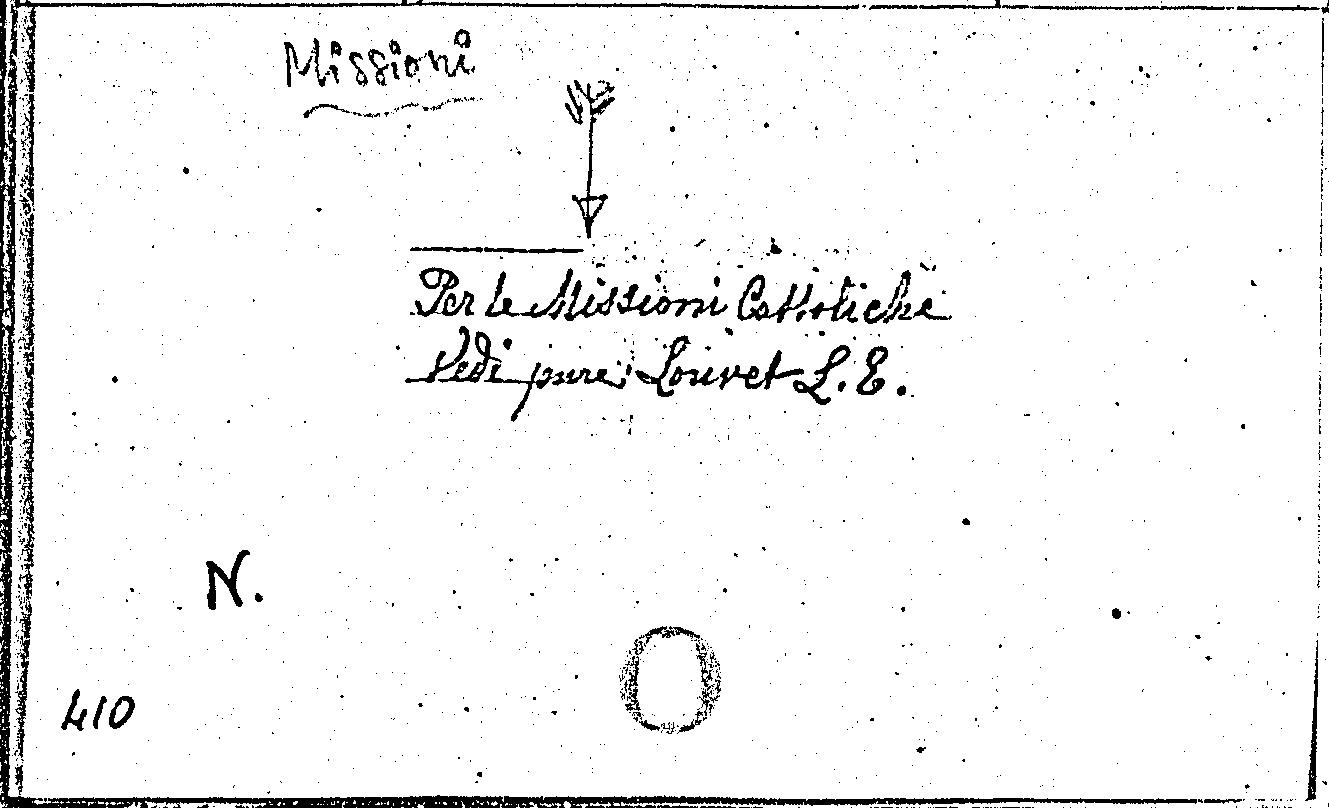 Missioni
Per le Missioni Cattoliche
Vedi pure: Louvet L. E.
N.
410